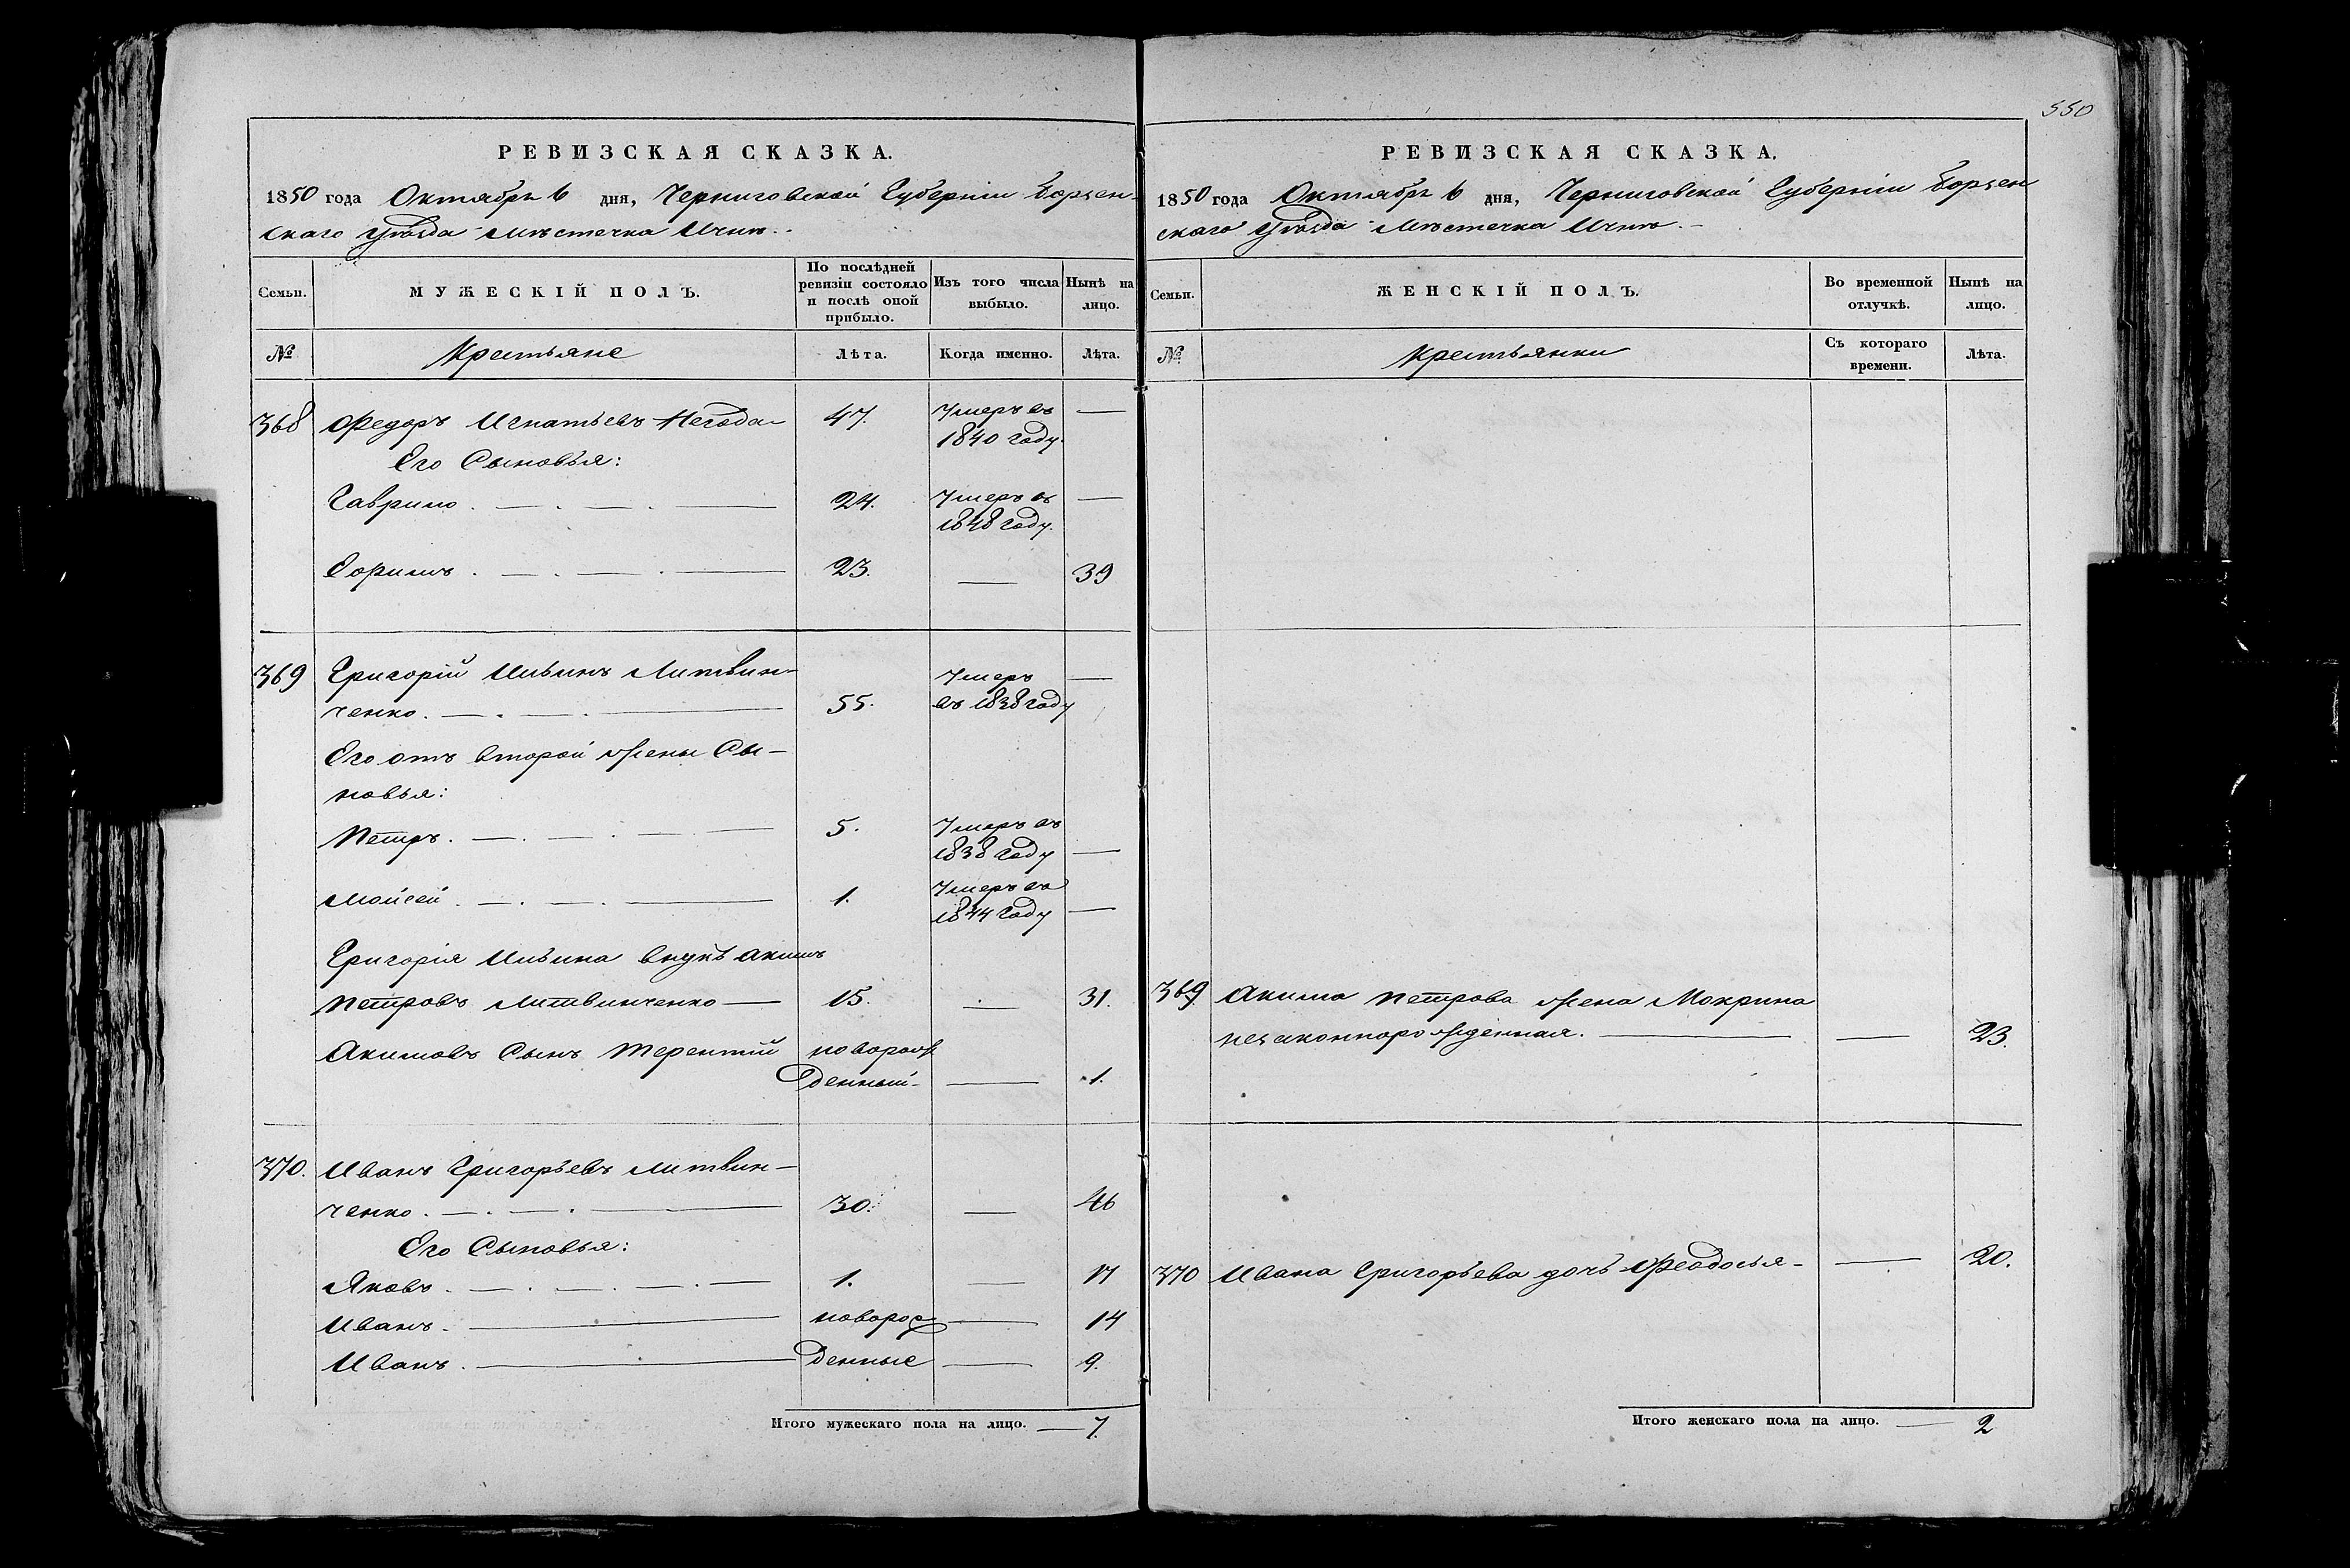 550
РЕВИЗСКАЯ СКАЗКА.
1850 года Октября 6 дня, Черниговской Губерніи Борзен-
скаго уѣзда мѣстечка Ични.
Семьи.
МУЖЕСКІЙ ПОЛЪ.
По послѣдней ревизіи состояло и послѣ оной прибыло.
Изъ того числа выбыло.
Нынѣ на лицо.
№
Крестьяне
Лѣта.
Когда именно.
Лѣта.
368 Федоръ Игнатьевъ 47. Умеръ въ —
1840 году.
Его Сыновья:
Гаврило 24. Умеръ въ —
1848 году.
23. — 39
369 Григорій Ильинъ Литвин- Умеръ —
ченко. 55. въ 1838 году
Его отъ второй жены Сы-
новья:
Петръ. 5. Умеръ въ
1838 году —
Мойсей. 1. Умеръ въ
1844 году —
Григорія Ильина внукъ Акимъ
Петровъ Литвинченко — 15. — 31.
Акимовъ Сынъ Терентій новорож
денный — 1.
370. Иванъ Григорьевъ Литвин-
ченко. 30. — 46
Его Сыновья:
Яковъ. 1. — 17
Иванъ. новорож — 14
Иванъ. денные — 9.
Итого мужескаго пола на лицо. — 7.
РЕВИЗСКАЯ СКАЗКА.
1850 года Октября 6 дня, Черниговской Губерніи Борзен
скаго уѣзда мѣстечка Ични.
Семьи.
ЖЕНСКІЙ ПОЛЪ.
Во временной отлучкѣ.
Нынѣ на лицо.
№
Крестьянки
Съ котораго времени.
Лѣта.
369 Акима Петрова жена Мокрина
незаконнорожденная. — 23.
370 Ивана Григорьева дочь Феодосья — 20.
Итого женскаго пола на лицо. — 2